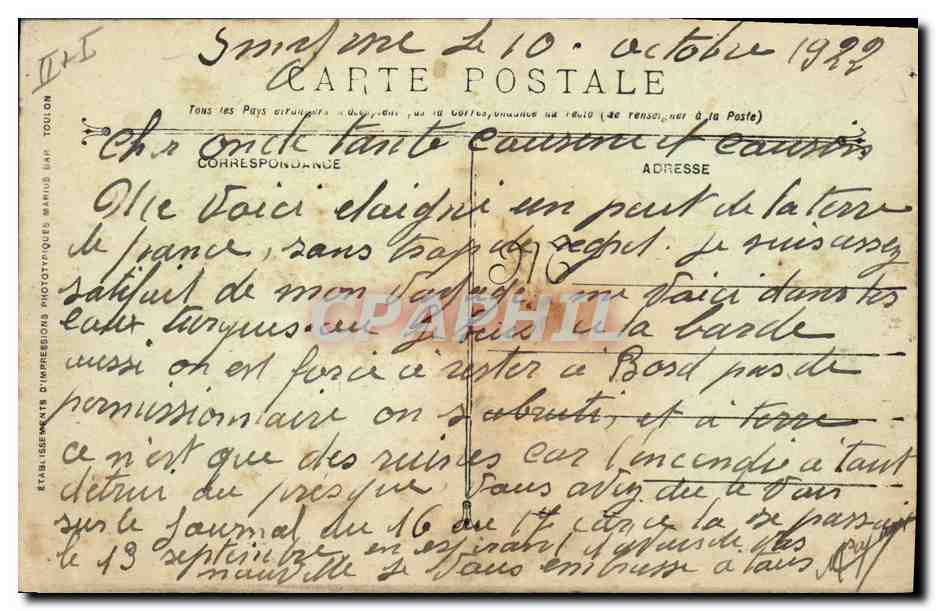 II + I
Smyrne le 10. octobre 1922
CARTE POSTALE
Tous les Pays étrangers n'acceptent pas la Correspondance au recto (se renseigner à la Poste)
Cher oncle tante cousine et cousin
CORRESPONDANCE
ADRESSE
Me voici elaigné un peut de la terre
de france, sans trop de regret. je suis assez
satifait de mon voyage me voici dans les
eaux turques ou je suis a la barde
aussi on est forcé a rester a Bord pas de
permissionnaire on s'abruti, et a terre
ce n'est que des ruines car l'incendie a tout
detrui ou presque. Vous avez du le voir
sur le Journal du 16 au 17 car ce la se passait
le 13 septembre en esperant d'avoir de vos
nouvelle je vous embrasse a tous
ÉTABLISSEMENTS D'IMPRESSIONS PHOTOTYPIQUES MARIUS BAR TOULON
CPAPHIL